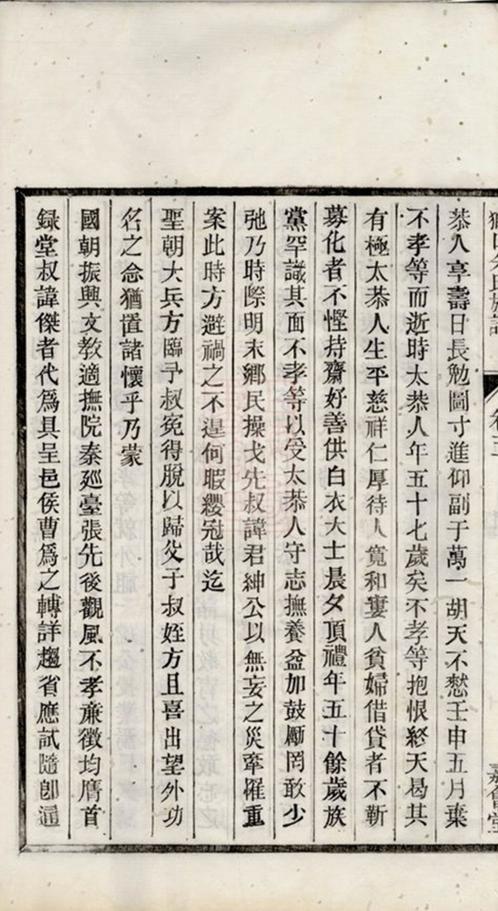 恭人享壽日長勉圖寸進仰副于萬一胡天不憖壬申五月棄
不孝等而逝時太恭人年五十七歲矣不孝等抱恨終天曷其
有極太恭人生平慈祥仁厚待人寬和窶人貧婦借貸者不靳
募化者不慳持齋好善供白衣大士晨夕頂禮年五十餘歲族
黨罕識其面不孝等以受太恭人守志撫養益加鼓厲罔敢少
弛乃時際明末鄉民操戈先叔諱君紳公以無妄之災牽罹重
案此時方避禍之不遑何暇纓冠哉迄
聖朝大兵方臨予叔寃得脫以歸父子叔姪方且喜出望外功
名之念猶置諸懷乎乃蒙
國朝振興文敎適撫院秦廵臺張先後觀風不孝亷徵均膺首
録堂叔諱傑者代爲具呈邑侯曹爲之轉詳趨省應試隨卽逼